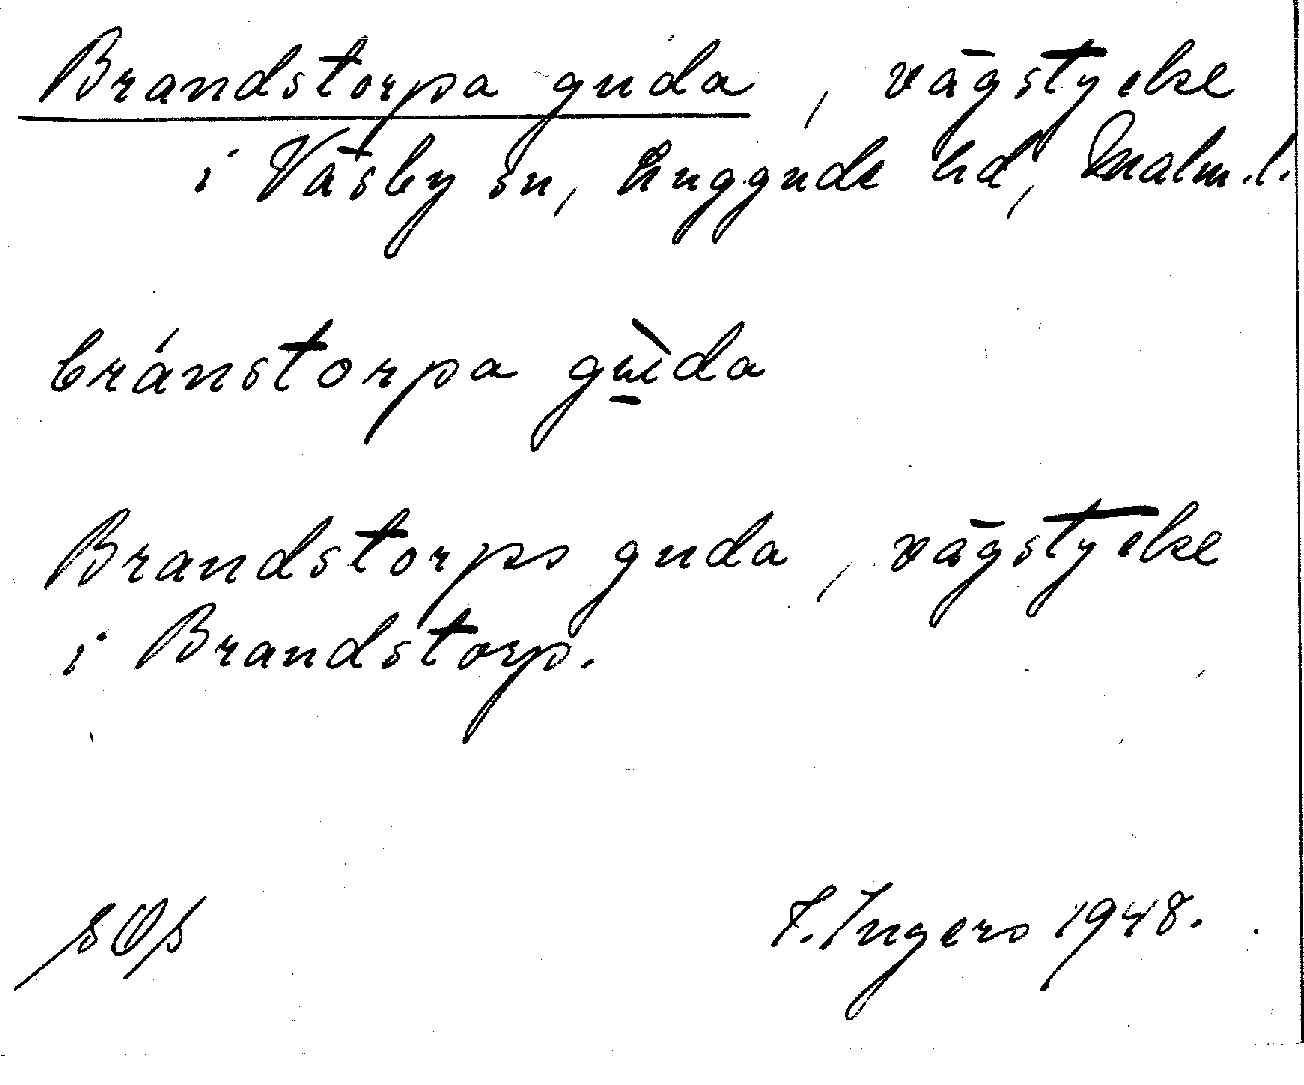 Brandstorpa guda, vägstycke
i Väsby sn, Luggude hd, Malm. l.
bránstorpa gù̠da
Brandstorps guda, vägstycke
i Brandstorp.
I. Ingers 1948.